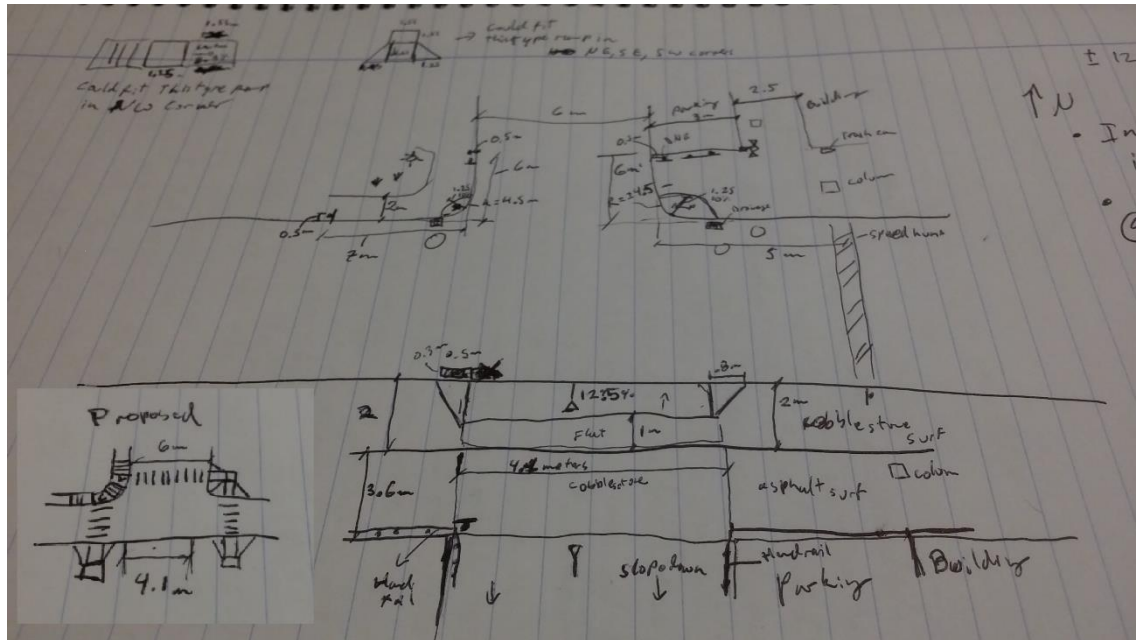 1.25m
Could fit this type ramp
in NW corner
→ Could fit
this type ramp in
NE, SE, SW corners
± 12
↑ N
• In
6m
Parking
3m
2.5
Building
Trash can
column
0.5m
6m
R=4.5m
2m
0.5m
7m
0.3m
6m
1.25
Drainage
5m
speed hump
0.3m 0.5m
.8m
12.5%
Flat
1m
2m
cobblestone
surf
colum
3.6m
meters
cobblestone
asphalt surf
Hand
rail
slopedown
Handrail
Parking
Building
Proposed
6m
4.1m